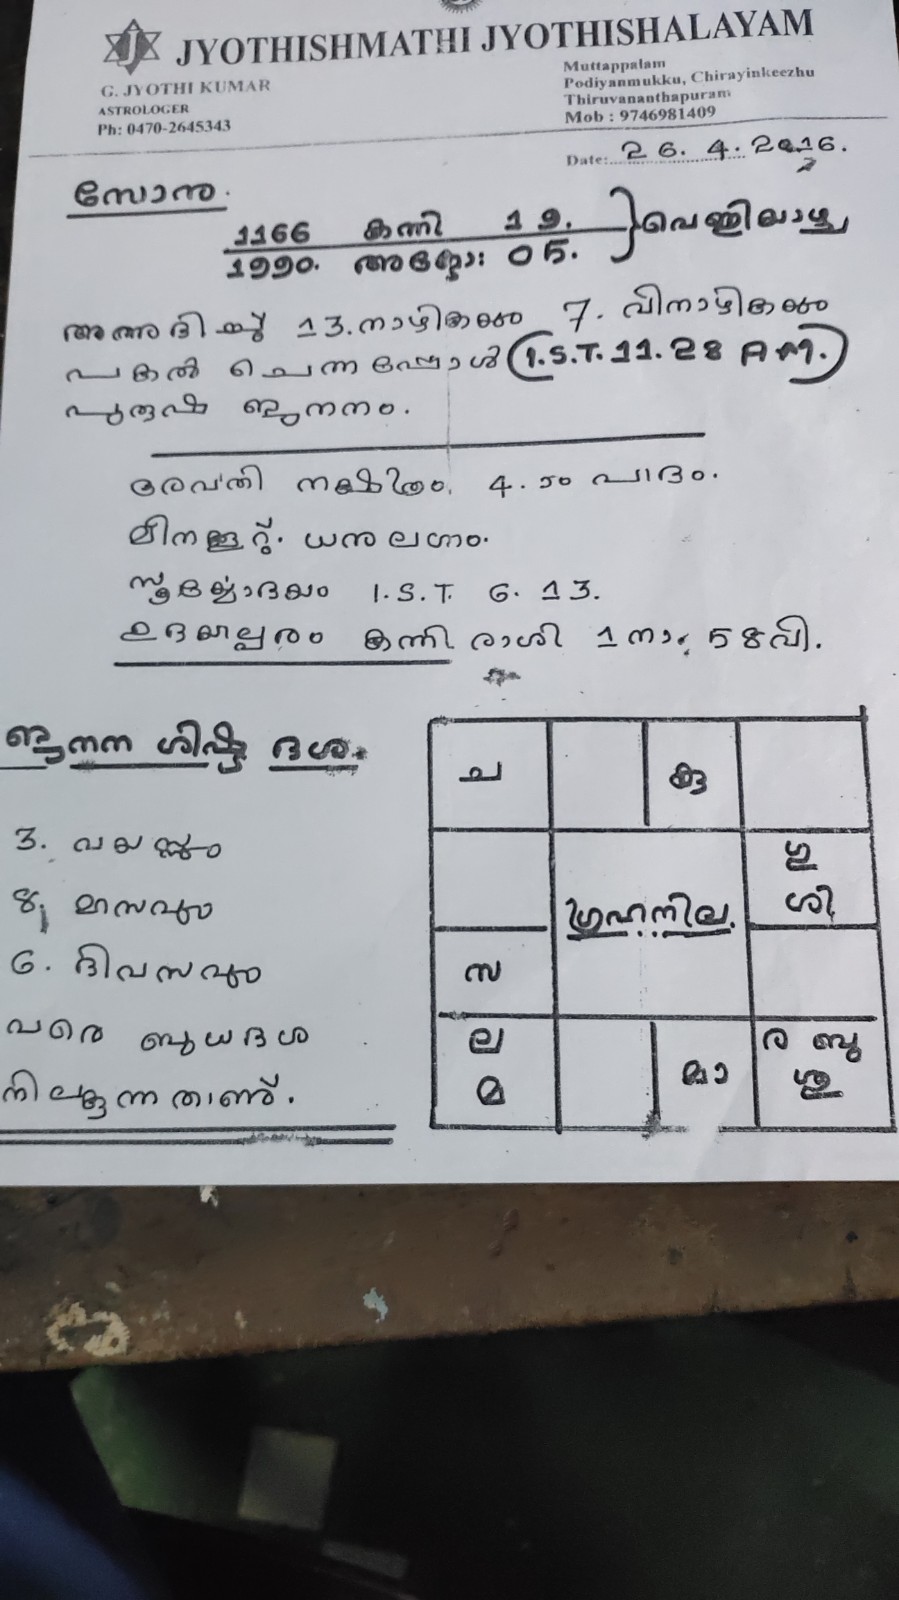 JYOTHISHMATHI JYOTHISHALAYAM
G. JYOTHI KUMAR
ASTROLOGER
Ph: 0470-2645343
Muttappalam
Podiyanmukku, Chirayinkeezhu
Thiruvananthapuram
Mob : 9746981409
Date: 26.4.2016.
സോനു.
1166 കന്നി 19. } വെള്ളിയാഴ്ച
1990. ഒക്ടോ: 05.
അന്നുദിച്ച് 13. നാഴികയും 7. വിനാഴികയും
പകൽ ചെന്നപ്പോൾ (I.S.T. 11.28 AM.)
പുരുഷ ജനനം.
രേവതി നക്ഷത്രം. 4.ാം പാദം.
മീനക്കൂറ്. ധനു ലഗ്നം.
സൂര്യോദയം I.S.T. 6.13.
ഉദയാല്പരം കന്നി രാശി 1നാ. 58വി.
ജനന ശിഷ്ട ദശ.
3. വയസ്സും
8. മാസവും
6. ദിവസവും
വരെ ബുധദശ
നില്ക്കുന്നതാണ്.
ച കു
ഗു
ശി
ഗ്രഹനില.
സ
ല
മ
മാ
ര ബു
ശു